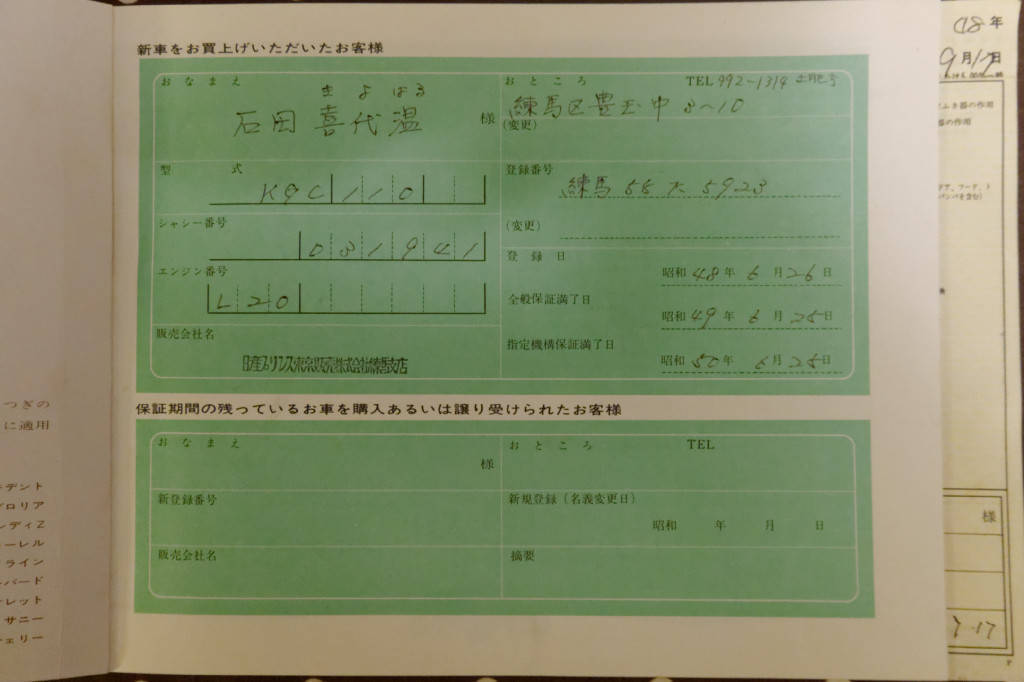 新車をお買上げいただいたお客様
おなまえ
きよはる
石田 喜代温 様
おところ TEL 992-1314
練馬区豊玉中 3~10
(変更)
型式
KGC110
登録番号
練馬 55 た 5923
シャシー番号
031941
(変更)
エンジン番号
L20
登録日
昭和 48年 6月26日
全般保証満了日
昭和 49年 6月25日
指定機構保証満了日
昭和 50年 6月25日
販売会社名
日産プリンス東京販売株式会社練馬支店
保証期間の残っているお車を購入あるいは譲り受けられたお客様
おなまえ
様
おところ TEL
新登録番号
新規登録(名義変更日)
昭和 年 月 日
販売会社名
摘要
つぎの
に適用
デント
グロリア
ンディZ
ーレル
ライン
バード
レット
サニー
ェリー
48年
9月17日
ふき器の作用
器の作用
様
7.17